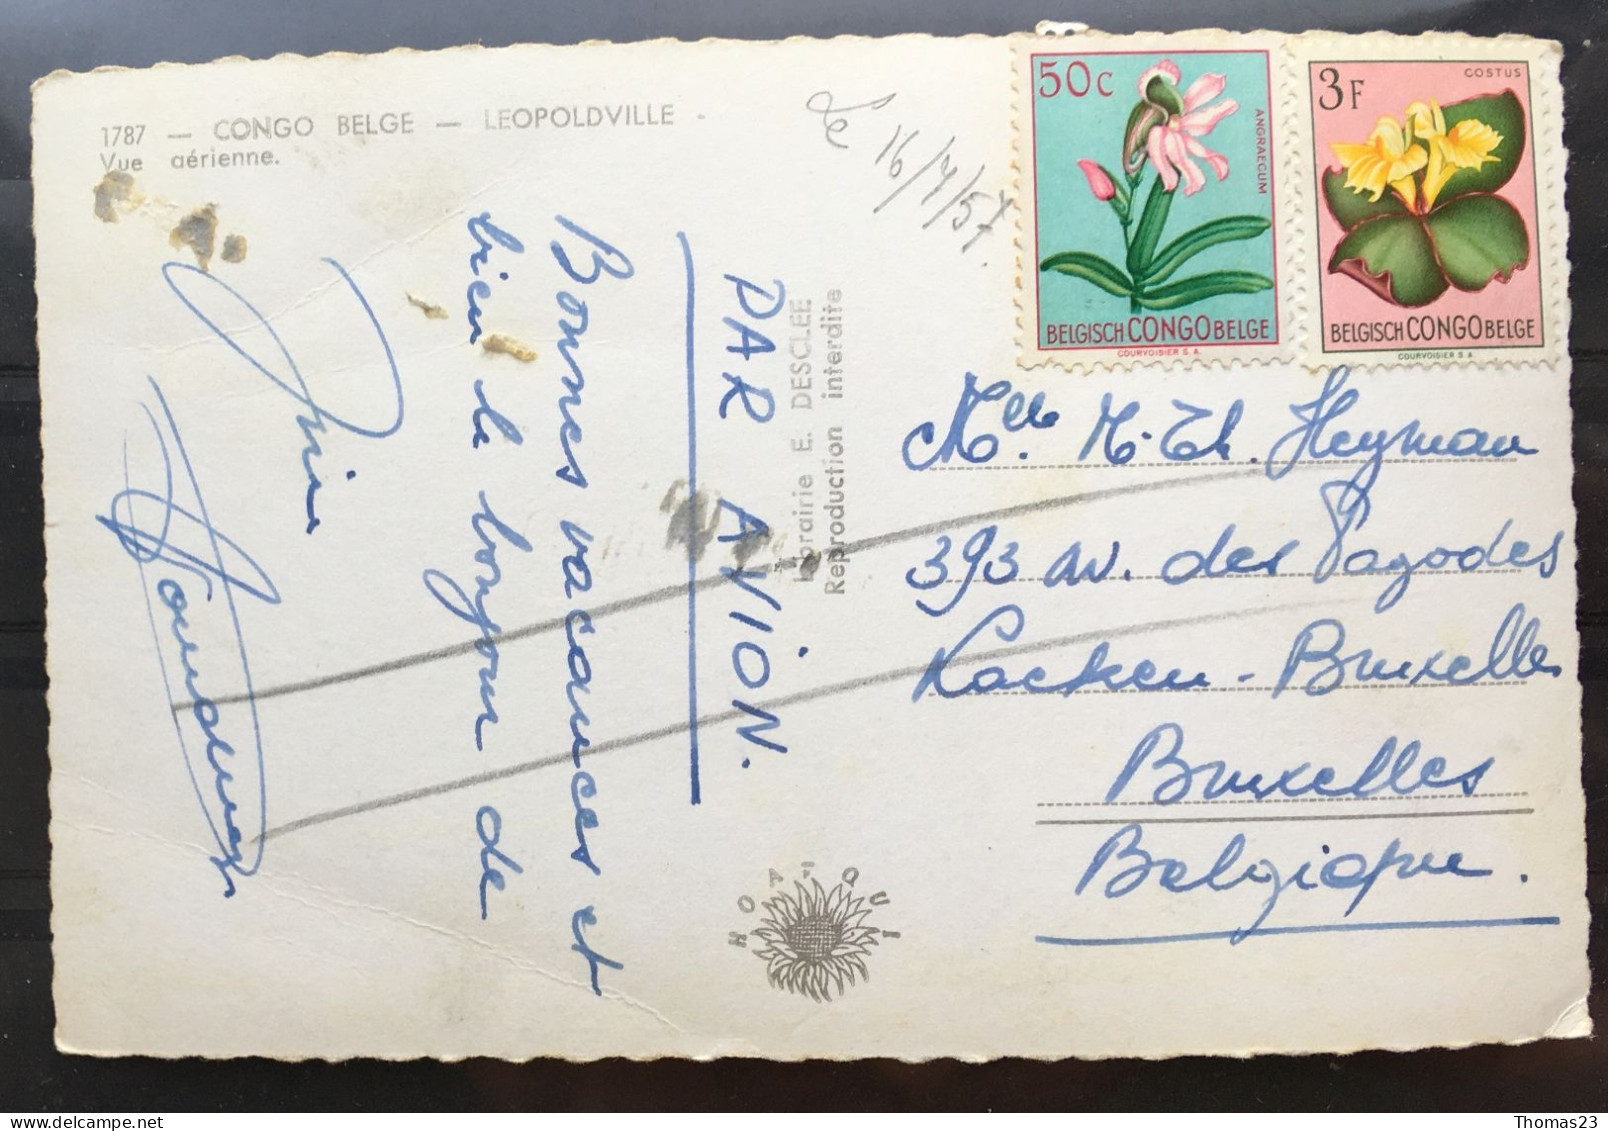 1787 — CONGO BELGE — LEOPOLDVILLE -
Vue aérienne.
Le 16/7/57.
50c
ANGRAECUM
BELGISCH CONGO BELGE
COURVOISIER S.A.
3F
COSTUS
BELGISCH CONGO BELGE
COURVOISIER S.A.
PAR AVION.
Bonnes vacances et
bien le bonjour de
Librairie E. DESCLÉE
Reproduction interdite
Mlle. M. Th. Heyman
393 av. des Pagodes
Laeken - Bruxelles
Bruxelles
Belgique.
HOA-QUI
Thomas23